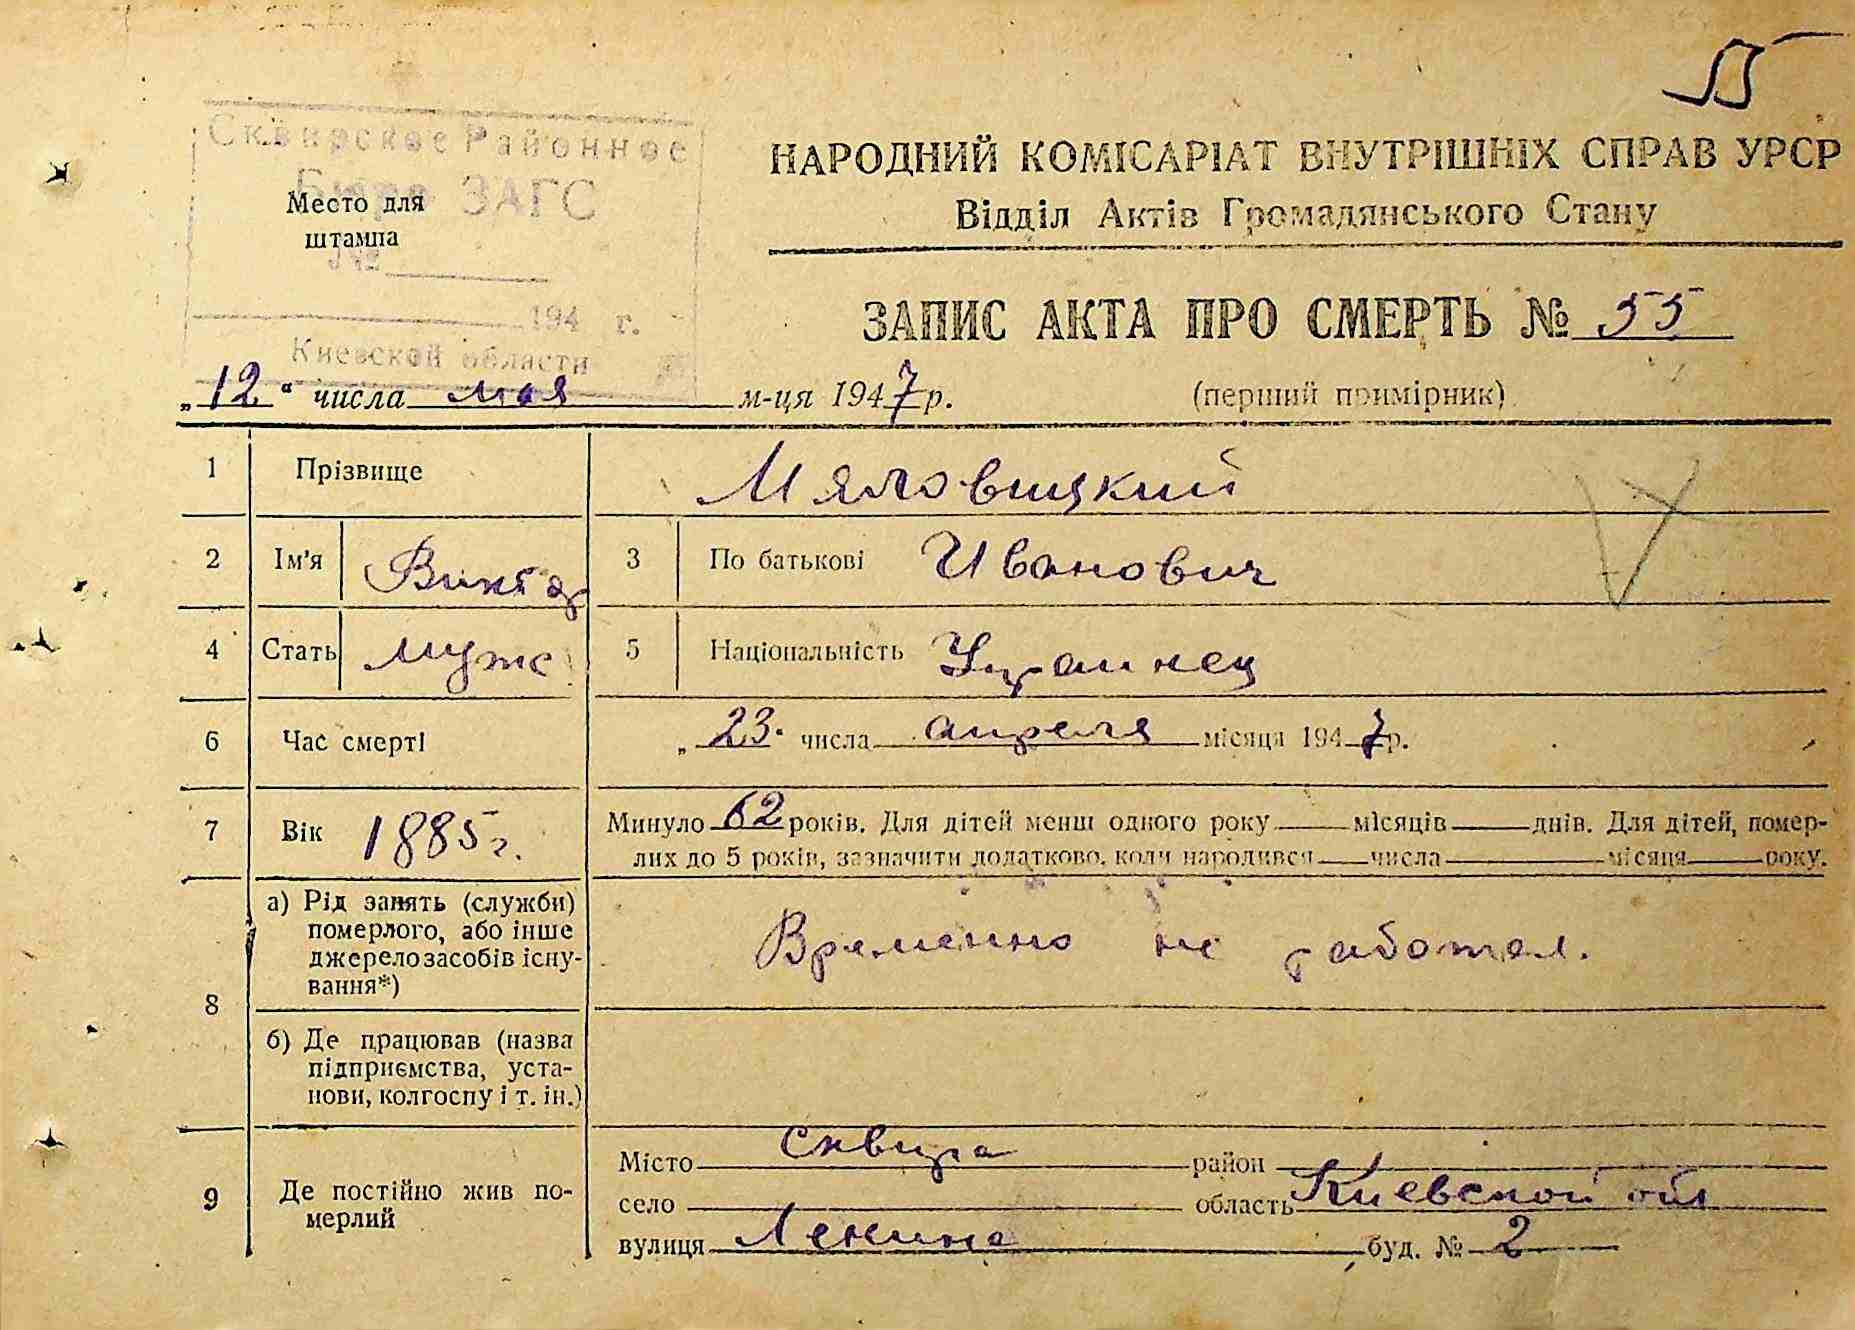 55
Сквирское Районное
Бюро ЗАГС
Место для
штампа
№
194 г.
Киевской области
НАРОДНИЙ КОМІСАРІАТ ВНУТРІШНІХ СПРАВ УРСР
Відділ Актів Громадянського Стану
ЗАПИС АКТА ПРО СМЕРТЬ № 55
„12“ числа мая м-ця 1947 р. (перший примірник)
1 Прізвище Мяловицкий
2 Ім'я Виктор 3 По батькові Иванович
4 Стать муж 5 Національність Украинец
6 Час смерті „23" числа апреля місяця 1947 р.
7 Вік 1885 г. Минуло 62 років. Для дітей менш одного року місяців днів. Для дітей, помер-
лих до 5 років, зазначити додатково, коли народився числа місяця року.
8 а) Рід занять (служби)
померлого, або інше
джерело засобів існу-
вання*)
Временно не работал.
б) Де працював (назва
підприємства, уста-
нови, колгоспу і т. ін.)
9 Де постійно жив по-
мерлий
Місто Сквира район
село область Киевской обл
вулиця Ленина буд. № 2